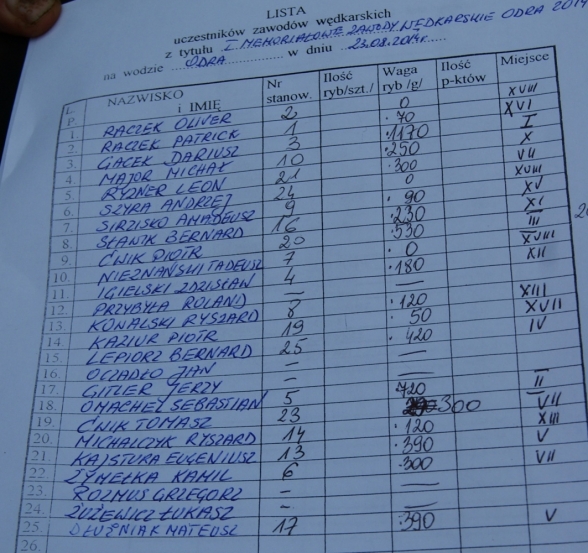 LISTA
uczestników zawodów wędkarskich
z tytułu I. MEMORIAŁOWE ZAWODY WĘDKARSKIE ODRA 2014
na wodzie ODRA w dniu 23.08.2014r.
L. P. NAZWISKO i IMIĘ Nr stanow. Ilość ryb/szt./ Waga ryb /g/ Ilość p-któw Miejsce
1. RACZEK OLIVER 2 0 XVIII
2. RACZEK PATRICK 1 70 XVI
3. GACEK DARIUSZ 3 1170 I
4. MAJOR MICHAŁ 10 250 X
5. RYDNER LEON 21 300 VII
6. SZYRA ANDRZEJ 24 0 XVIII
7. SIRZISKO AMADEUSZ 9 90 XV
8. SŁAWIK BERNARD 16 230 XI
9. ĆWIK PIOTR 20 530 III
10. NIEZNAŃSKI TADEUSZ 7 0 XVIII
11. IGIELSKI ZDZISŁAW 4 180 XII
12. PRZYBYŁA ROLAND – —
13. KOWALSKI RYSZARD 8 120 XIII
14. KAZIUR PIOTR 19 50 XVII
15. LEPIORZ BERNARD 25 420 IV
16. OCZADŁO JAN – —
17. GITLER JERZY – —
18. OMACHEL SEBASTIAN 5 720 II
19. ĆWIK TOMASZ 23 300 VII
20. MICHALCZYK RYSZARD 14 120 XIII
21. KAJSTURA EUGENIUSZ 13 390 V
22. ŻYMEŁKA KAMIL 6 300 VII
23. ROZMUS GRZEGORZ – —
24. ŻUŻEWICZ ŁUKASZ – —
25. DŁUŻNIAK MATEUSZ 17 390 V
26.